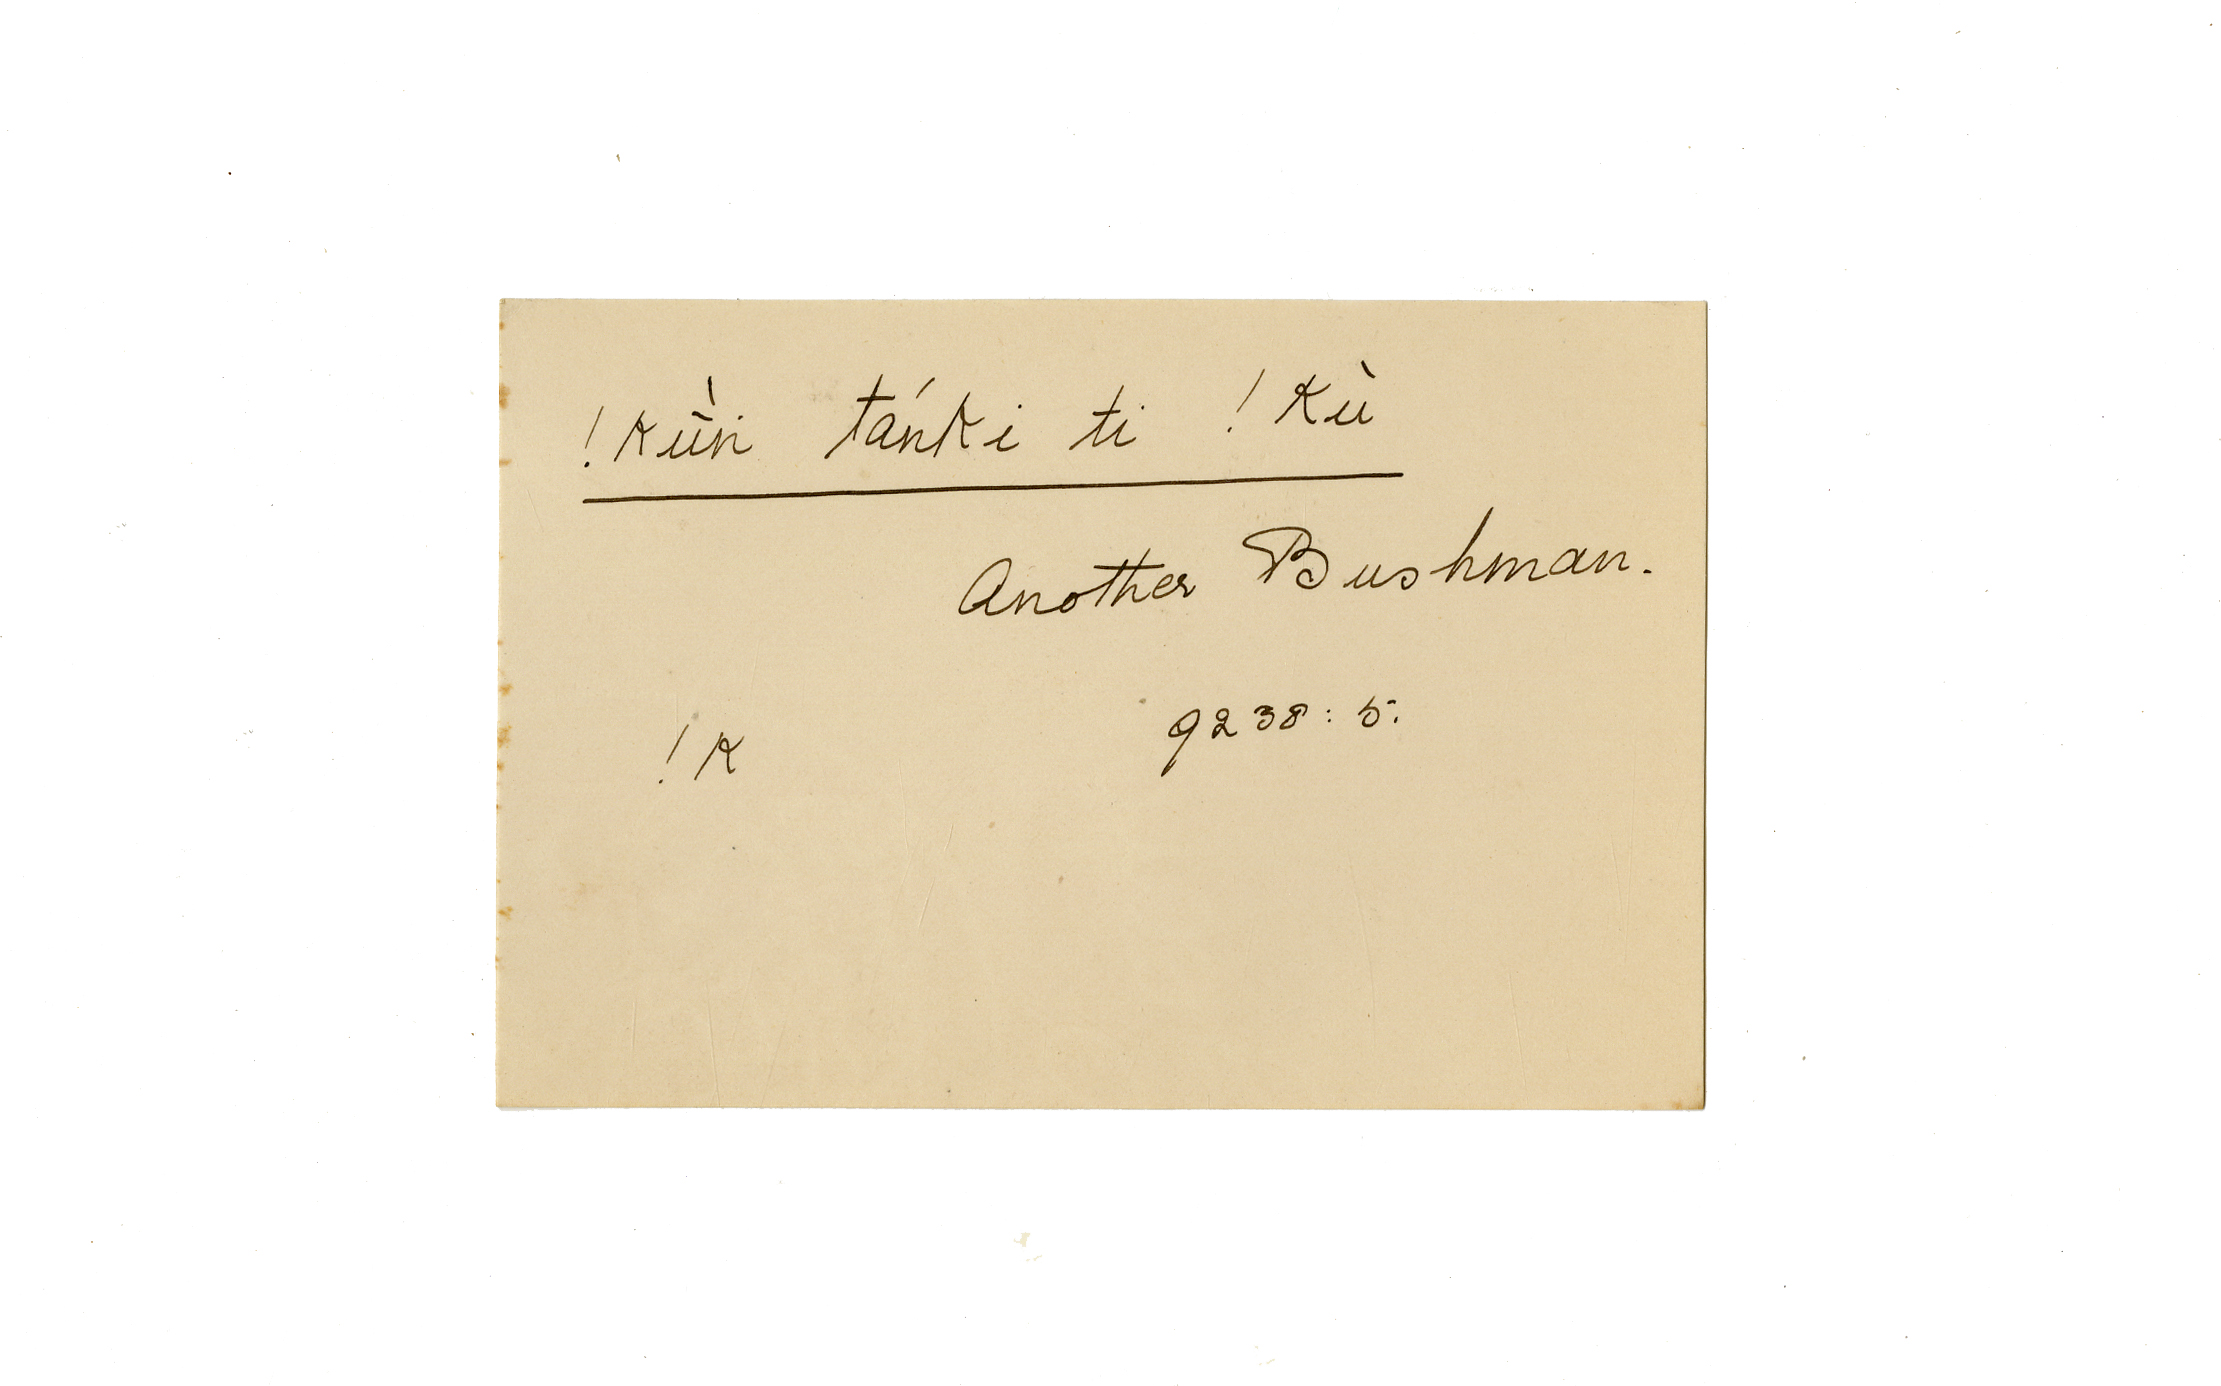 !kū̀n tańki ti !kù
Another Bushman.
!k 9238:5.